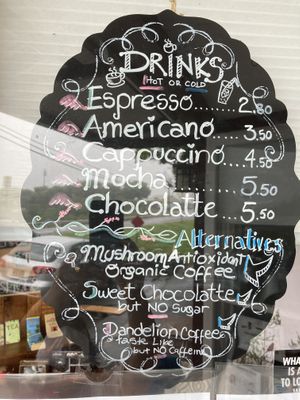 DRINKS
HOT OR COLD
Espresso......2.80
Americano...3.50
Cappuccino...4.50
Mocha........5.50
Chocolatte...5.50
Alternatives
Mushroom Antioxidant
Organic Coffee
Sweet Chocolatte
but NO Sugar
Dandelion Coffee
taste Like
but NO Caffeine
WHA
IS A
TO L